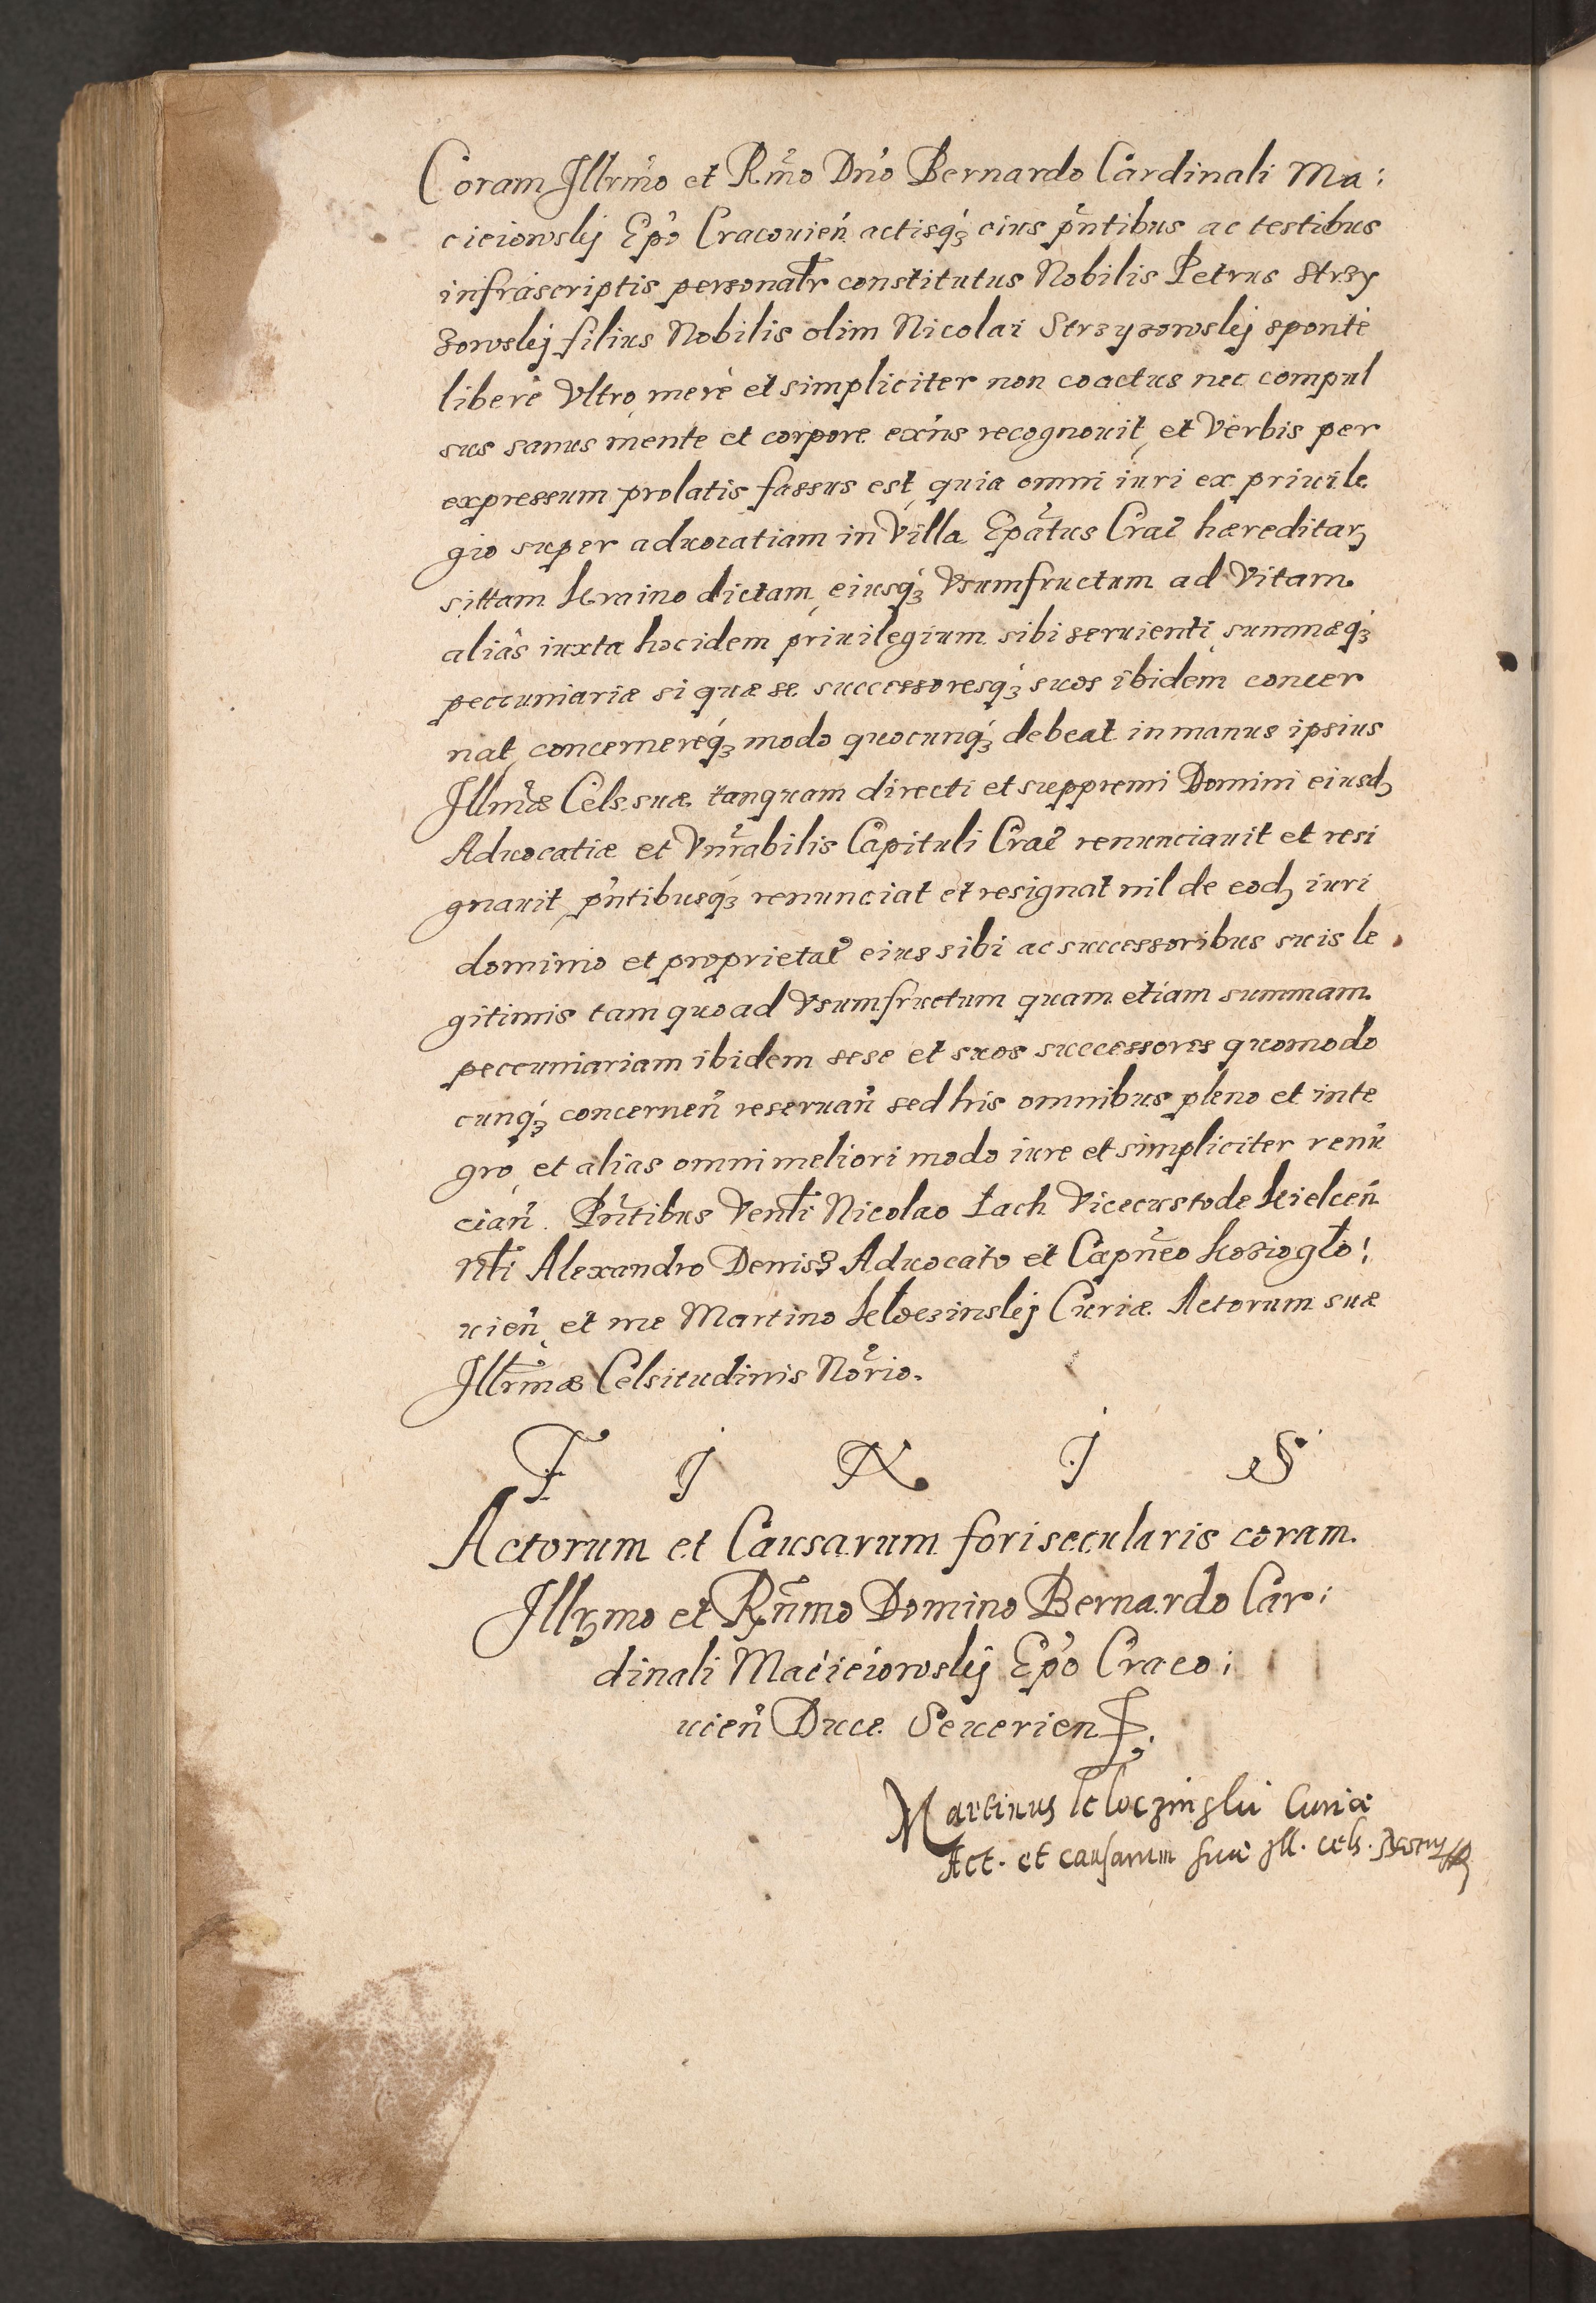 Coram Illrmo et Rmo Dno Bernardo Cardinali Ma:
cieiowskj Epo Cracouien actisq3 eius pntibus ac testibus
infrascriptis personalr constitutus Nobilis Petrus Strzy
zowskj filius Nobilis olim Nicolai Strzyzowskj sponte
libere Vltro, mere et simpliciter non coactus nec compul
sus sanus mente et corpore exns recognouit, et Verbis per
expressum prolatis fassus est, quia omni iuri ex priuile
gio super aduocatiam in Villa Epatus Crac haereditar
sittam Kraino dictam, eiusq3 Vsumfructum ad Vitam
alias iuxta hoc idem priuilegium sibi seruienti, summaeq3
peccuniariae si quae se successoresq3 suos ibidem concer
nat, concernereq3 modo quocunq3 debeat in manus ipsius
Illmae Cels. suae tanquam directi et suppremi Domini eiusd
Aduocatiae et Vnrabilis Capituli Crac renunciauit et resi
gnauit, pntibusq3 renunciat et resignat nil de eod iuri
dominio et proprietat eius sibi ac successoribus suis le
gitimis tam quo ad Vsumfructum quam etiam summam
peccuniariam ibidem sese et suos successores quomodo
cunq3 concernen reseruan sed his omnibus pleno et inte
gro, et alias omni meliori modo iure et simpliciter renu
cian. Pntibus Venli Nicolao Łach Vicecustode Kielcen
Nli Alexandro Denisz Aduocato et Capneo Koziogło:
uien, et me Martino Kłoczinskj Curiae Actorum suae
Illrmae Celsitudinis Norio.
F I N I S
Actorum et Causarum fori secularis coram
Illrmo et Rnmo Domino Bernardo Car:
dinali Macieiowskj Epo Craco:
uien Duce Seuerien.
Martinus Kłoczinskii Curiae
Act. et causarum suae Ill. cels. Norius